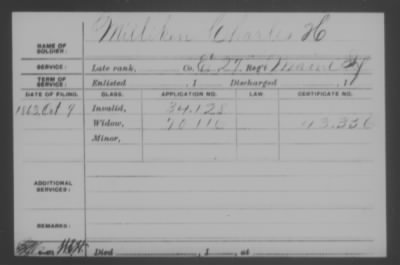 NAME OF SOLDIER: Milliken Charles H
SERVICE: Late rank, Co. E 27 Reg't Maine
TERM OF SERVICE: Enlisted , 1 Discharged , 1
DATE OF FILING. CLASS. APPLICATION NO. LAW. CERTIFICATE NO.
1863 Oct 9 Invalid, 34.128
Widow, 20.116 43.336
Minor,
ADDITIONAL SERVICES:
REMARKS:
Died , 1 , at